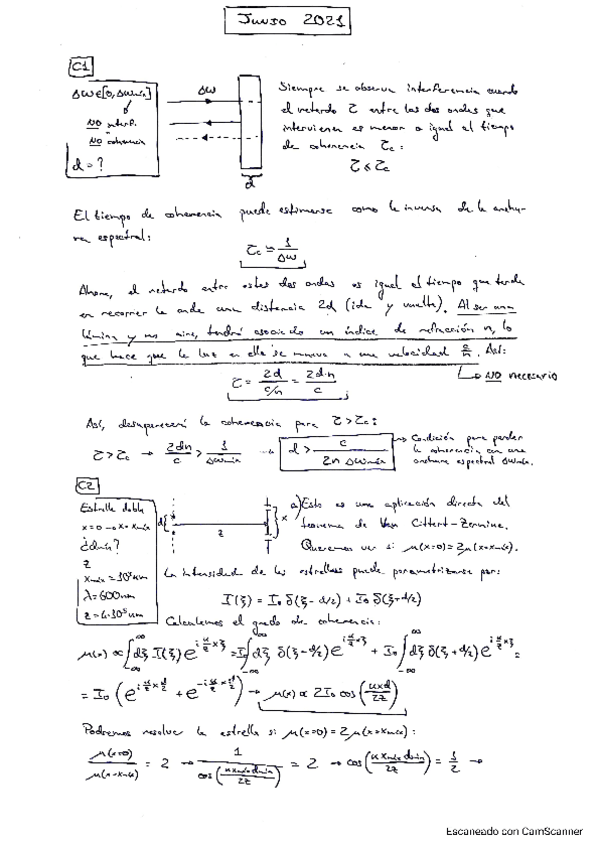 Junio 2021
C1
Δω∈[0,Δωmín]
NO interf.
NO coherencia
d=?
Δω
d
Siempre se observa interferencia cuando
el retardo τ entre las dos ondas que
intervienen es menor o igual al tiempo
de coherencia τc:
τ≤τc
El tiempo de coherencia puede estimarse como la inversa de la anchu-
ra espectral:
τc ≃ 1/Δω
Ahora, el retardo entre estas dos ondas es igual al tiempo que tarda
en recorrer la onda una distancia 2d (ida y vuelta). Al ser una
lámina y no aire, tendrá asociado un índice de refracción n, lo
que hace que la luz en ella se mueva a una velocidad c/n. Así:
τ = 2d/(c/n) = 2d·n/c
NO necesario
Así, desaparecerá la coherencia para τ>τc:
τ>τc → 2dn/c > 1/Δωmín → d > c/(2n Δωmín)
Condición para perder
la coherencia con una
anchura espectral Δωmín.
C2
Estrella doble
x=0 → x=xmáx
¿dmín?
z
λ=600nm
d
z
x
a) Esto es una aplicación directa del
teorema de Van Cittert-Zernike.
Queremos ver si μ(x=0)=2μ(x=xmáx).
La intensidad de las estrellas puede parametrizarse por:
I(ξ) = I₀ δ(ξ-d/2) + I₀ δ(ξ+d/2)
Calculemos el grado de coherencia:
μ(x) ∝ ∫dξ I(ξ) e^{i κ/z xξ} = I₀∫dξ δ(ξ-d/2) e^{i κ/z xξ} + I₀∫dξ δ(ξ+d/2) e^{i κ/z xξ} =
= I₀ (e^{i κ/z x d/2} + e^{-i κ/z x d/2}) → μ(x) ∝ 2I₀ cos(κxd/2z)
Podremos resolver la estrella si μ(x=0) = 2μ(x=xmáx):
μ(x=0)/μ(x=xmáx) = 2 → 1/cos(κxmáx dmín/2z) = 2 → cos(κxmáx dmín/2z) = 1/2 →
Escaneado con CamScanner